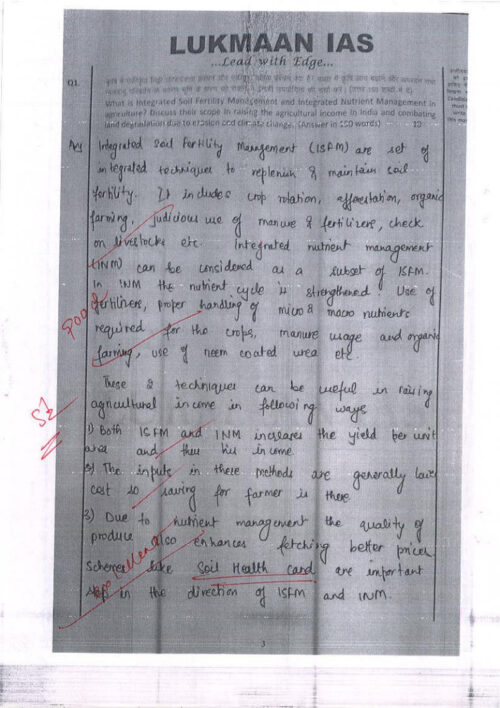 LUKMAAN IAS
...Lead with Edge...
Q1.
What is Integrated Soil Fertility Management and Integrated Nutrient Management in
agriculture? Discuss their scope in raising the agricultural income in India and combating
land degradation due to erosion and climate change. (Answer in 150 words)
Integrated Soil Fertility Management (ISFM) are set of
integrated techniques to replenish & maintain soil
fertility. It includes crop rotation, afforestation, organic
farming, judicious use of manure & fertilizers, check
on livestocks etc. Integrated nutrient management
(INM) can be considered as a subset of ISFM.
In INM the nutrient cycle is strengthened. Use of
fertilizers, proper handling of micro & macro nutrients
required for the crops, manure usage and organic
farming, use of neem coated urea etc.
Good
These 2 techniques can be useful in raising
agricultural income in following ways
1) Both ISFM and INM increases the yield per unit
area and thus his income.
The inputs in these methods are generally low
cost so saving for farmer is there.
3) Due to nutrient management the quality of
produce also enhances fetching better prices.
Schemes like Soil Health Card are important
step in the direction of ISFM and INM.
3